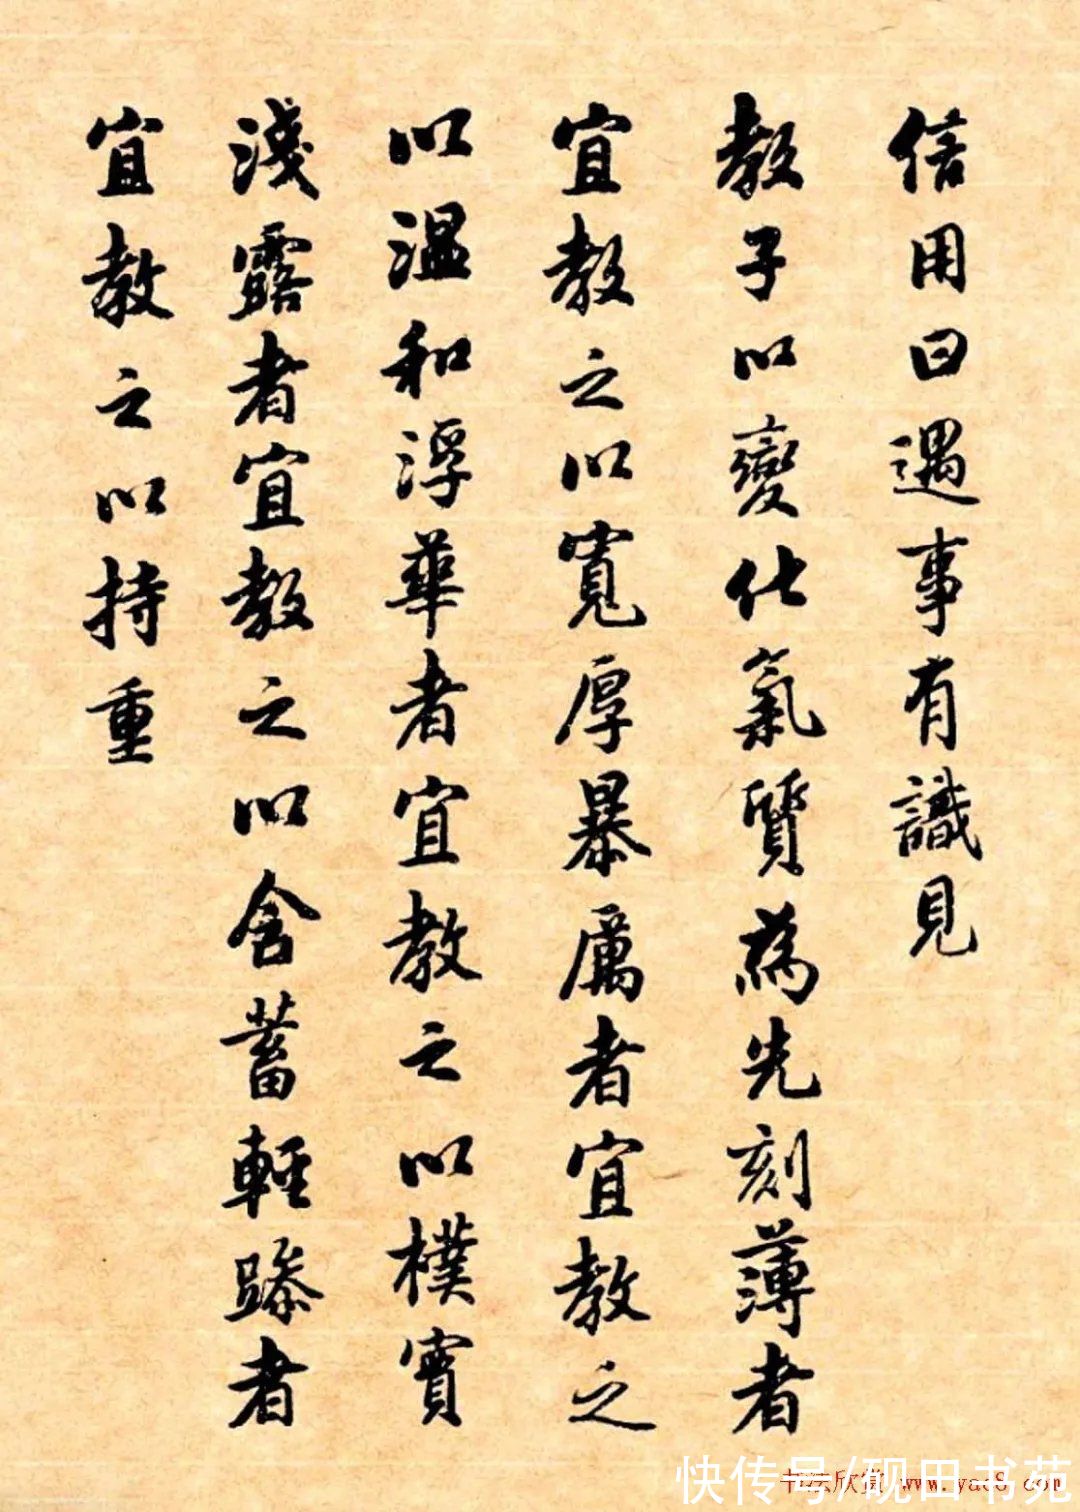 信用曰遇事有識見
教子以變化氣質為先刻薄者
宜教之以寬厚暴厲者宜教之
以溫和浮華者宜教之以樸實
淺露者宜教之以含蓄輕躁者
宜教之以持重
书法欣赏 www.yac8.com
快传号/砚田书苑